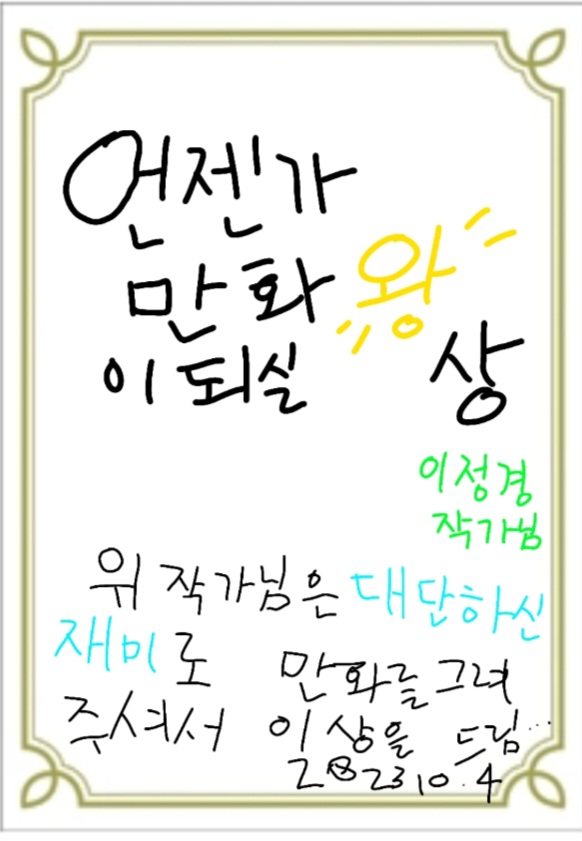 언젠가
만화왕
이되실 상
이정경
작가님
위 작가님은 대단하신
재미로 만화를그려
주셔서 이상을 드림...
2023 10.4